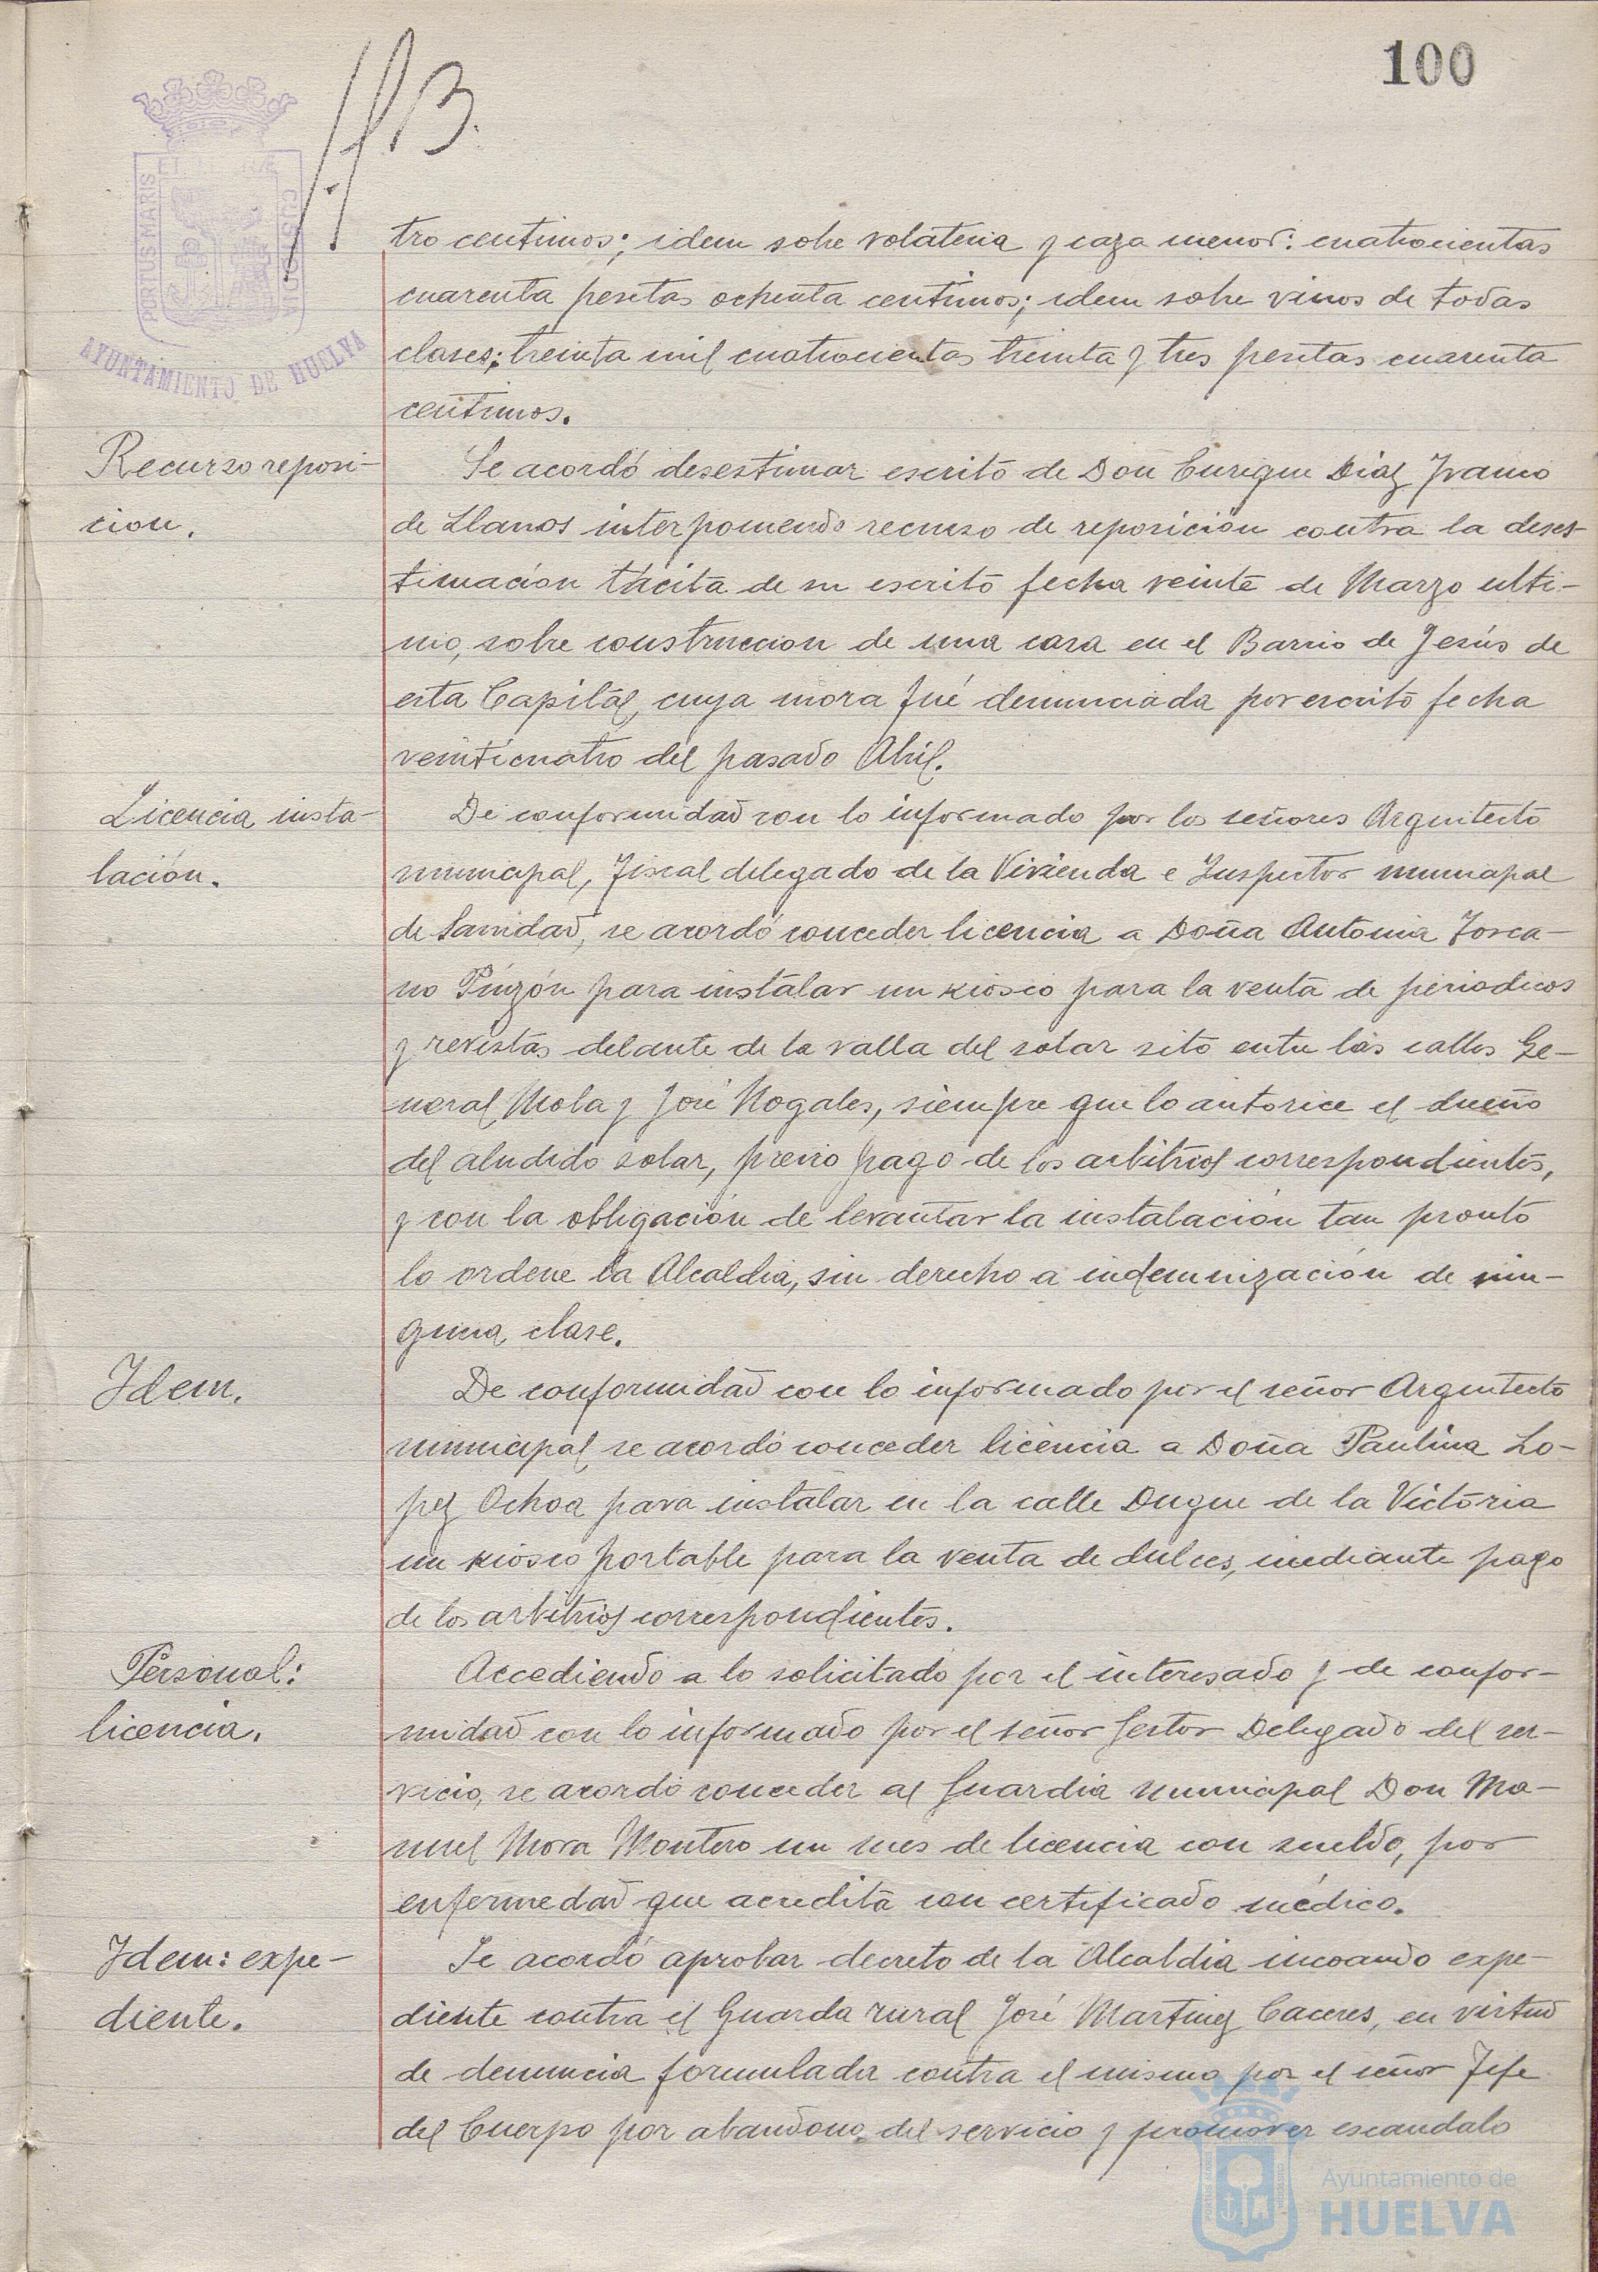 100
PORTUS MARIS
CUSTODIA
AYUNTAMIENTO DE HUELVA
tro centimos; idem sobre volateria y caza menor: cuatrocientas
cuarenta pesetas ochenta centimos; idem sobre vinos de todas
clases: treinta mil cuatrocientas treinta y tres pesetas cuarenta
centimos.
Recurso reposi-
cion.
Se acordó desestimar escrito de Don Enrique Diaz Franco
de Llanos interponiendo recurso de reposición contra la deses-
timación tácita de su escrito fecha veinte de Marzo ulti-
mo, sobre construccion de una casa en el Barrio de Jesús de
esta Capital, cuya mora fué denunciada por escrito fecha
veinticuatro del pasado Abril.
Licencia insta-
lación.
De conformidad con lo informado por los señores Arquitecto
municipal, Fiscal delegado de la Vivienda e Inspector municipal
de Sanidad, se acordó conceder licencia a Doña Antonia Tosca-
no Pinzón para instalar un kiosco para la venta de periodicos
y revistas delante de la valla del solar sito entre las calles Ge-
neral Mola y José Nogales, siempre que lo autorice el dueño
del aludido solar, previo pago de los arbitrios correspondientes,
y con la obligación de levantar la instalación tan pronto
lo ordene la Alcaldia, sin derecho a indemnización de nin-
guna clase.
Idem.
De conformidad con lo informado por el señor Arquitecto
municipal se acordó conceder licencia a Doña Paulina Lo-
pez Ochoa para instalar en la calle Duque de la Victoria
un kiosco portable para la venta de dulces, mediante pago
de los arbitrios correspondientes.
Personal:
licencia.
Accediendo a lo solicitado por el interesado y de confor-
midad con lo informado por el señor Gestor Delegado del ser-
vicio, se acordó conceder al Guardia municipal Don Ma-
nuel Mora Montero un mes de licencia con sueldo, por
enfermedad que acredita con certificado médico.
Idem: expe-
diente.
Se acordó aprobar decreto de la Alcaldia incoando expe-
diente contra el Guarda rural José Martinez Caceres, en virtud
de denuncia formulada contra el mismo por el señor Jefe
del Cuerpo por abandono del servicio y promover escandalo
Ayuntamiento de
HUELVA